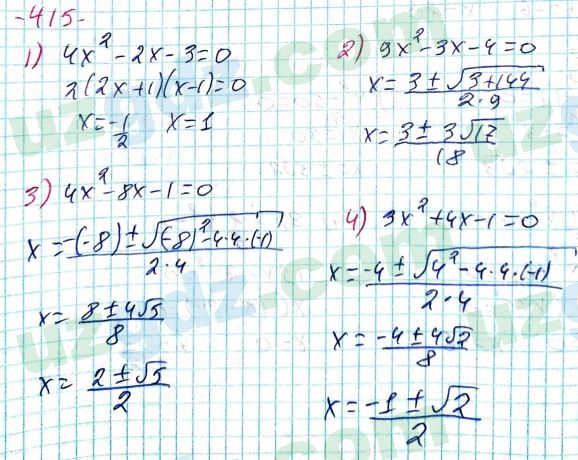 -415-
1) 4x² - 2x - 3 = 0
2(2x+1)(x-1) = 0
x = -1/2   x = 1
2) 9x² - 3x - 4 = 0
x = (3 ± √(3+144))/(2·9)
x = (3 ± 3√17)/18
3) 4x² - 8x - 1 = 0
x = (-(-8) ± √((-8)² - 4·4·(-1)))/(2·4)
x = (8 ± 4√5)/8
x = (2 ± √5)/2
4) 3x² + 4x - 1 = 0
x = (-4 ± √(4² - 4·4·(-1)))/(2·4)
x = (-4 ± 4√2)/8
x = (-1 ± √2)/2